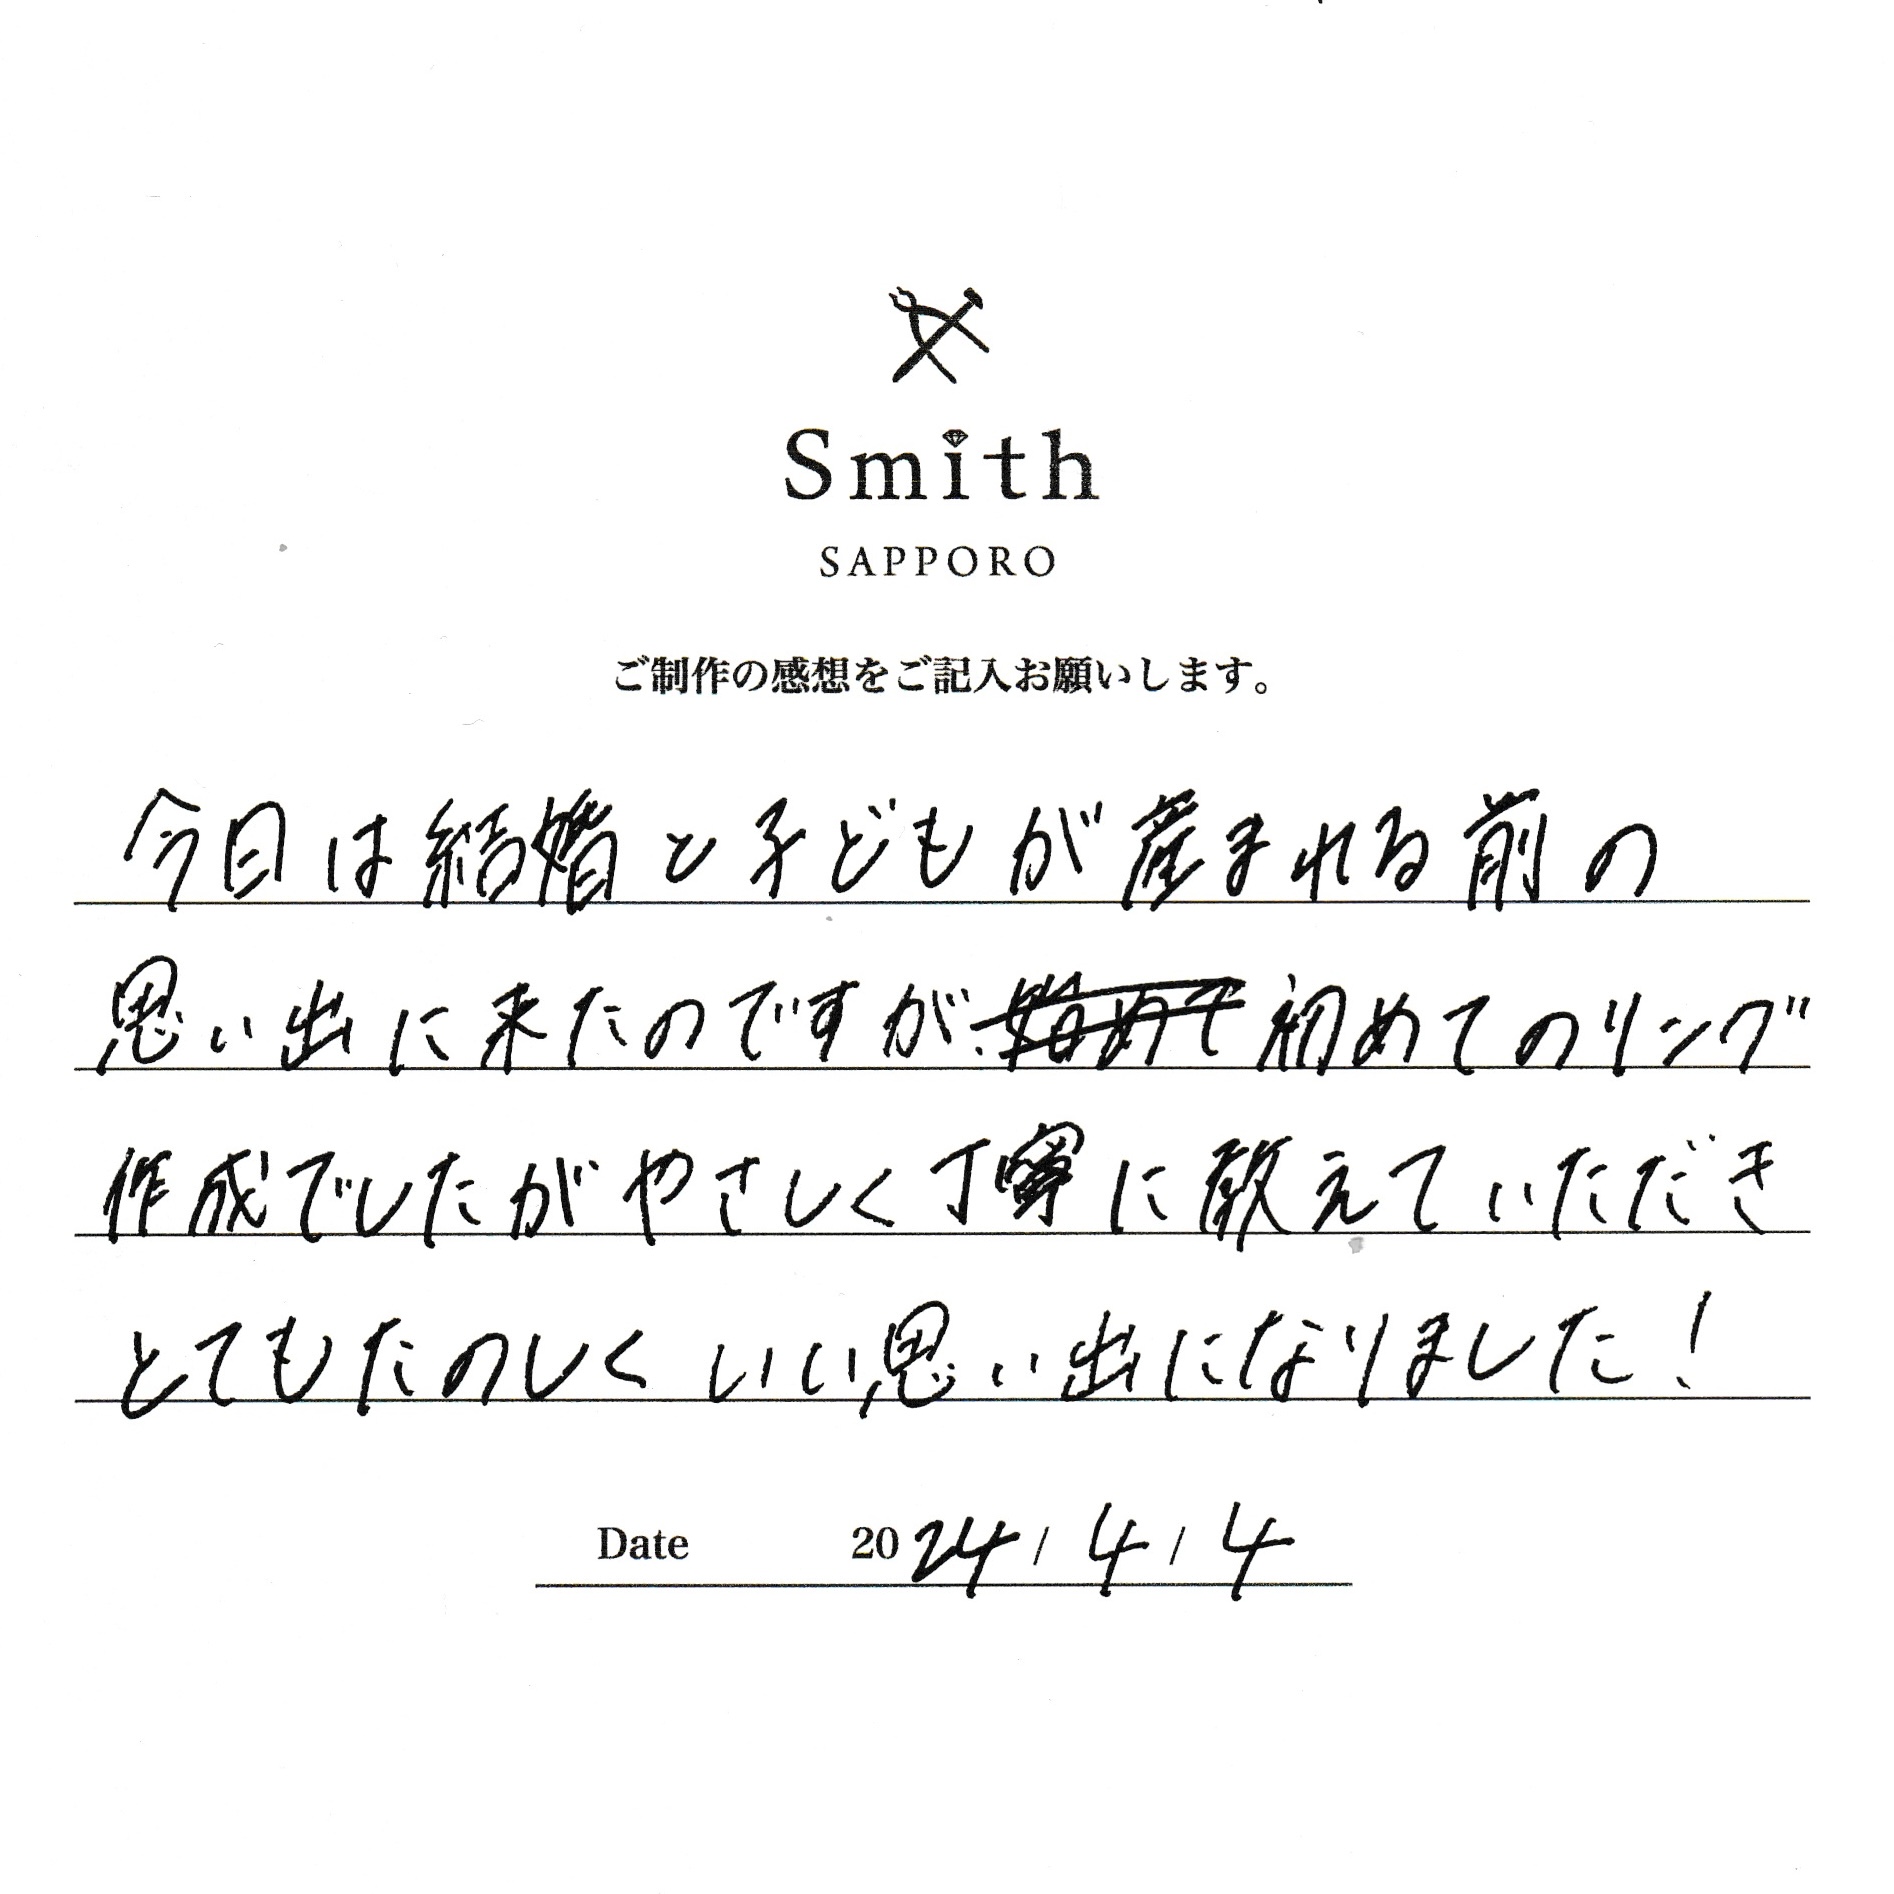 Smith
SAPPORO
ご制作の感想をご記入お願いします。
今日は結婚と子どもが産まれる前の
思い出に来たのですが、始めて初めてのリング
作成でしたがやさしく丁寧に教えていただき
とてもたのしくいい思い出になりました!
Date 2024/4/4